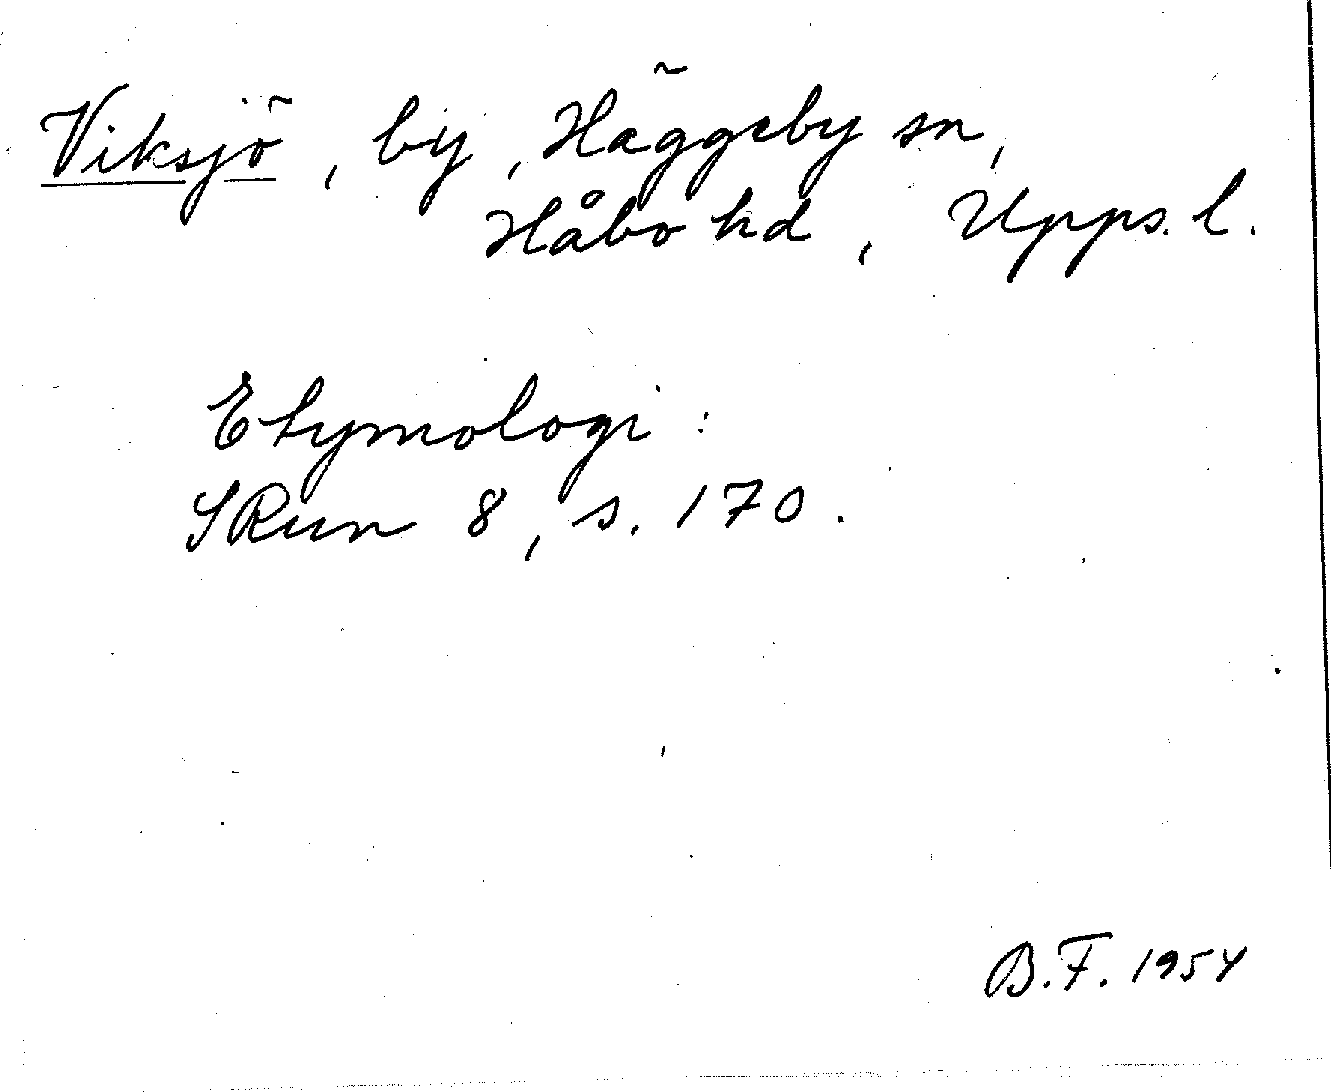 Viksjö, by, Häggeby sn,
Håbo hd, Upps. l.
Etymologi:
SRun 8, s. 170.
B.F. 1954